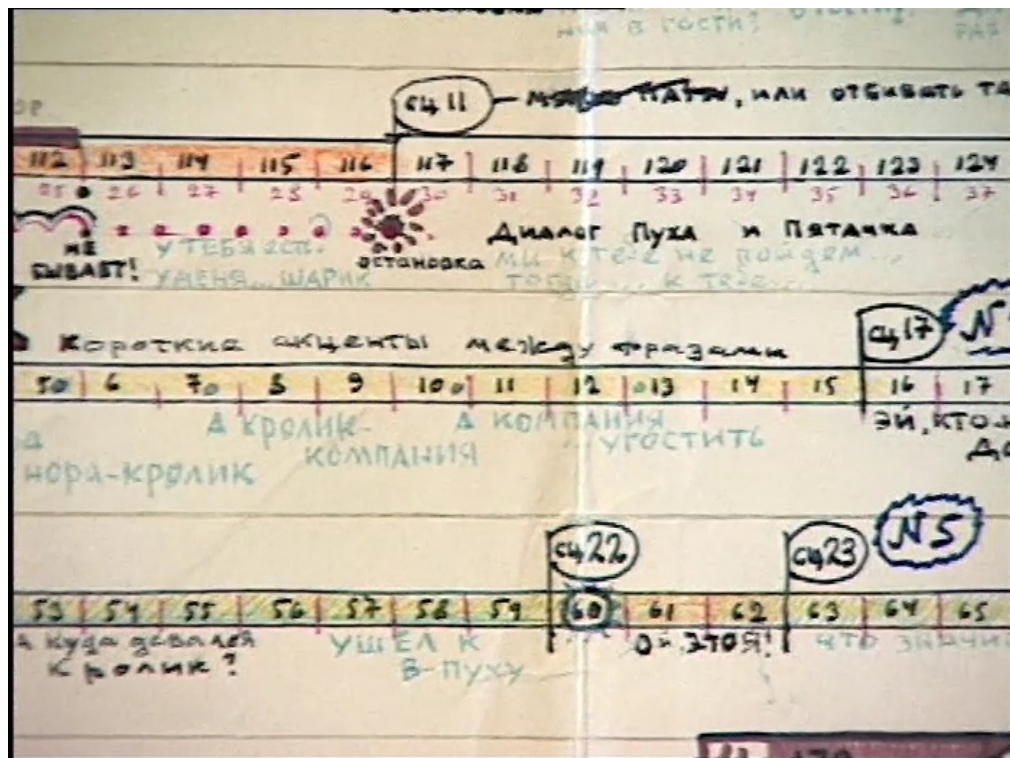 НИК В ГОСТИ?
сц 11 — , ИЛИ ОТБИВАТЬ ТА
112 113 114 115 116 117 118 119 120 121 122 123 124
25 26 27 28 29 30 31 32 33 34 35 36 37
НЕ БЫВАЕТ!
У ТЕБЯ ЕСТ.
У МЕНЯ... ШАРИК
ОСТАНОВКА
ДИАЛОГ ПУХА И ПЯТАЧКА
МЫ К ТЕБЕ НЕ ПОЙДЕМ...
К ТЕБЕ...
КОРОТКИЕ АКЦЕНТЫ МЕЖДУ ФРАЗАМИ
сц 17 N
5 6 7 8 9 10 11 12 13 14 15 16 17
НОРА-КРОЛИК
А КРОЛИК-
КОМПАНИЯ
А КОМПАНИЯ
УГОСТИТЬ
ЭЙ, КТО-
сц 22 сц 23 N5
53 54 55 56 57 58 59 60 61 62 63 64 65
А КУДА ДЕВАЛСЯ
КРОЛИК?
УШЕЛ К
В-ПУХУ
ОЙ, ЭТО Я!
ЧТО ЗНАЧИ